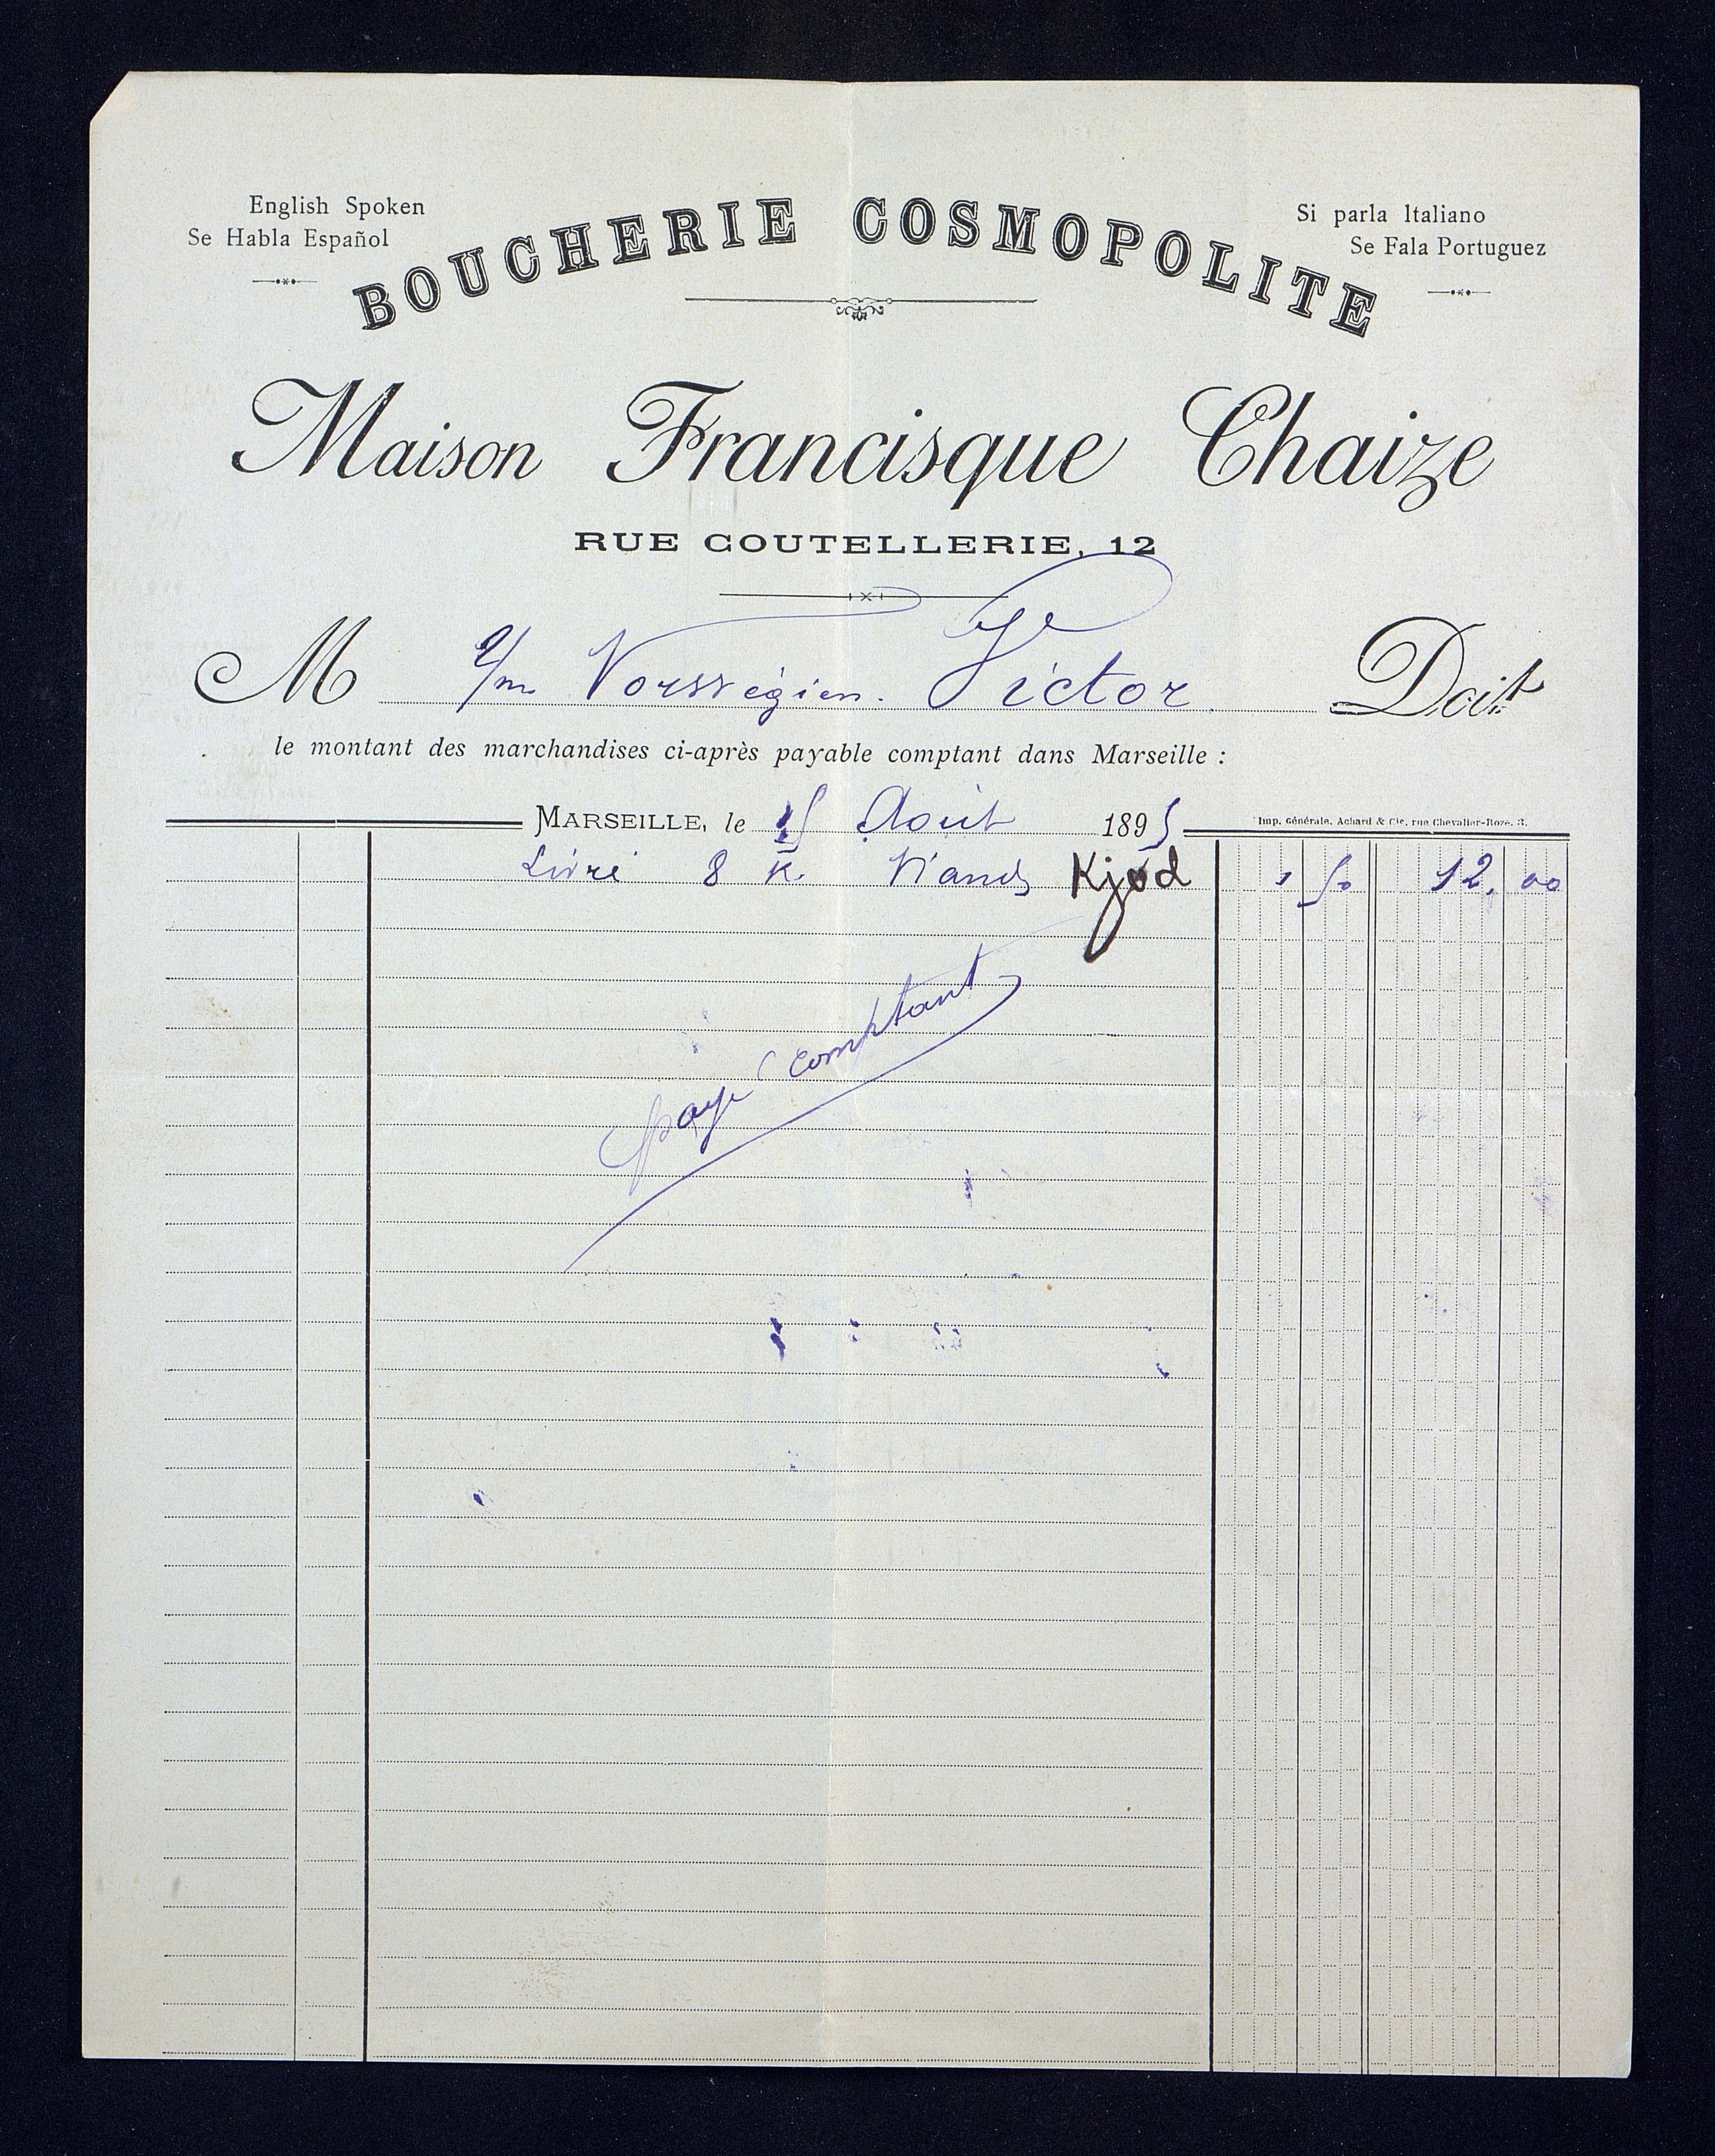 English Spoken
Se Habla Español
BOUCHERIE COSMOPOLITE
Si parla Italiano
Se Fala Portuguez
Maison Francisque Chaize
RUE COUTELLERIE, 12
M Victor Doit
le montant des marchandises ci-après payable comptant dans Marseille :
MARSEILLE, le 15 Août 1895
Imp. Générale, Achard & Cie, rue Chevalier-Roze, 3.
Livré 8 K. Viande Kjød 1 50 12, 00
payé comptant